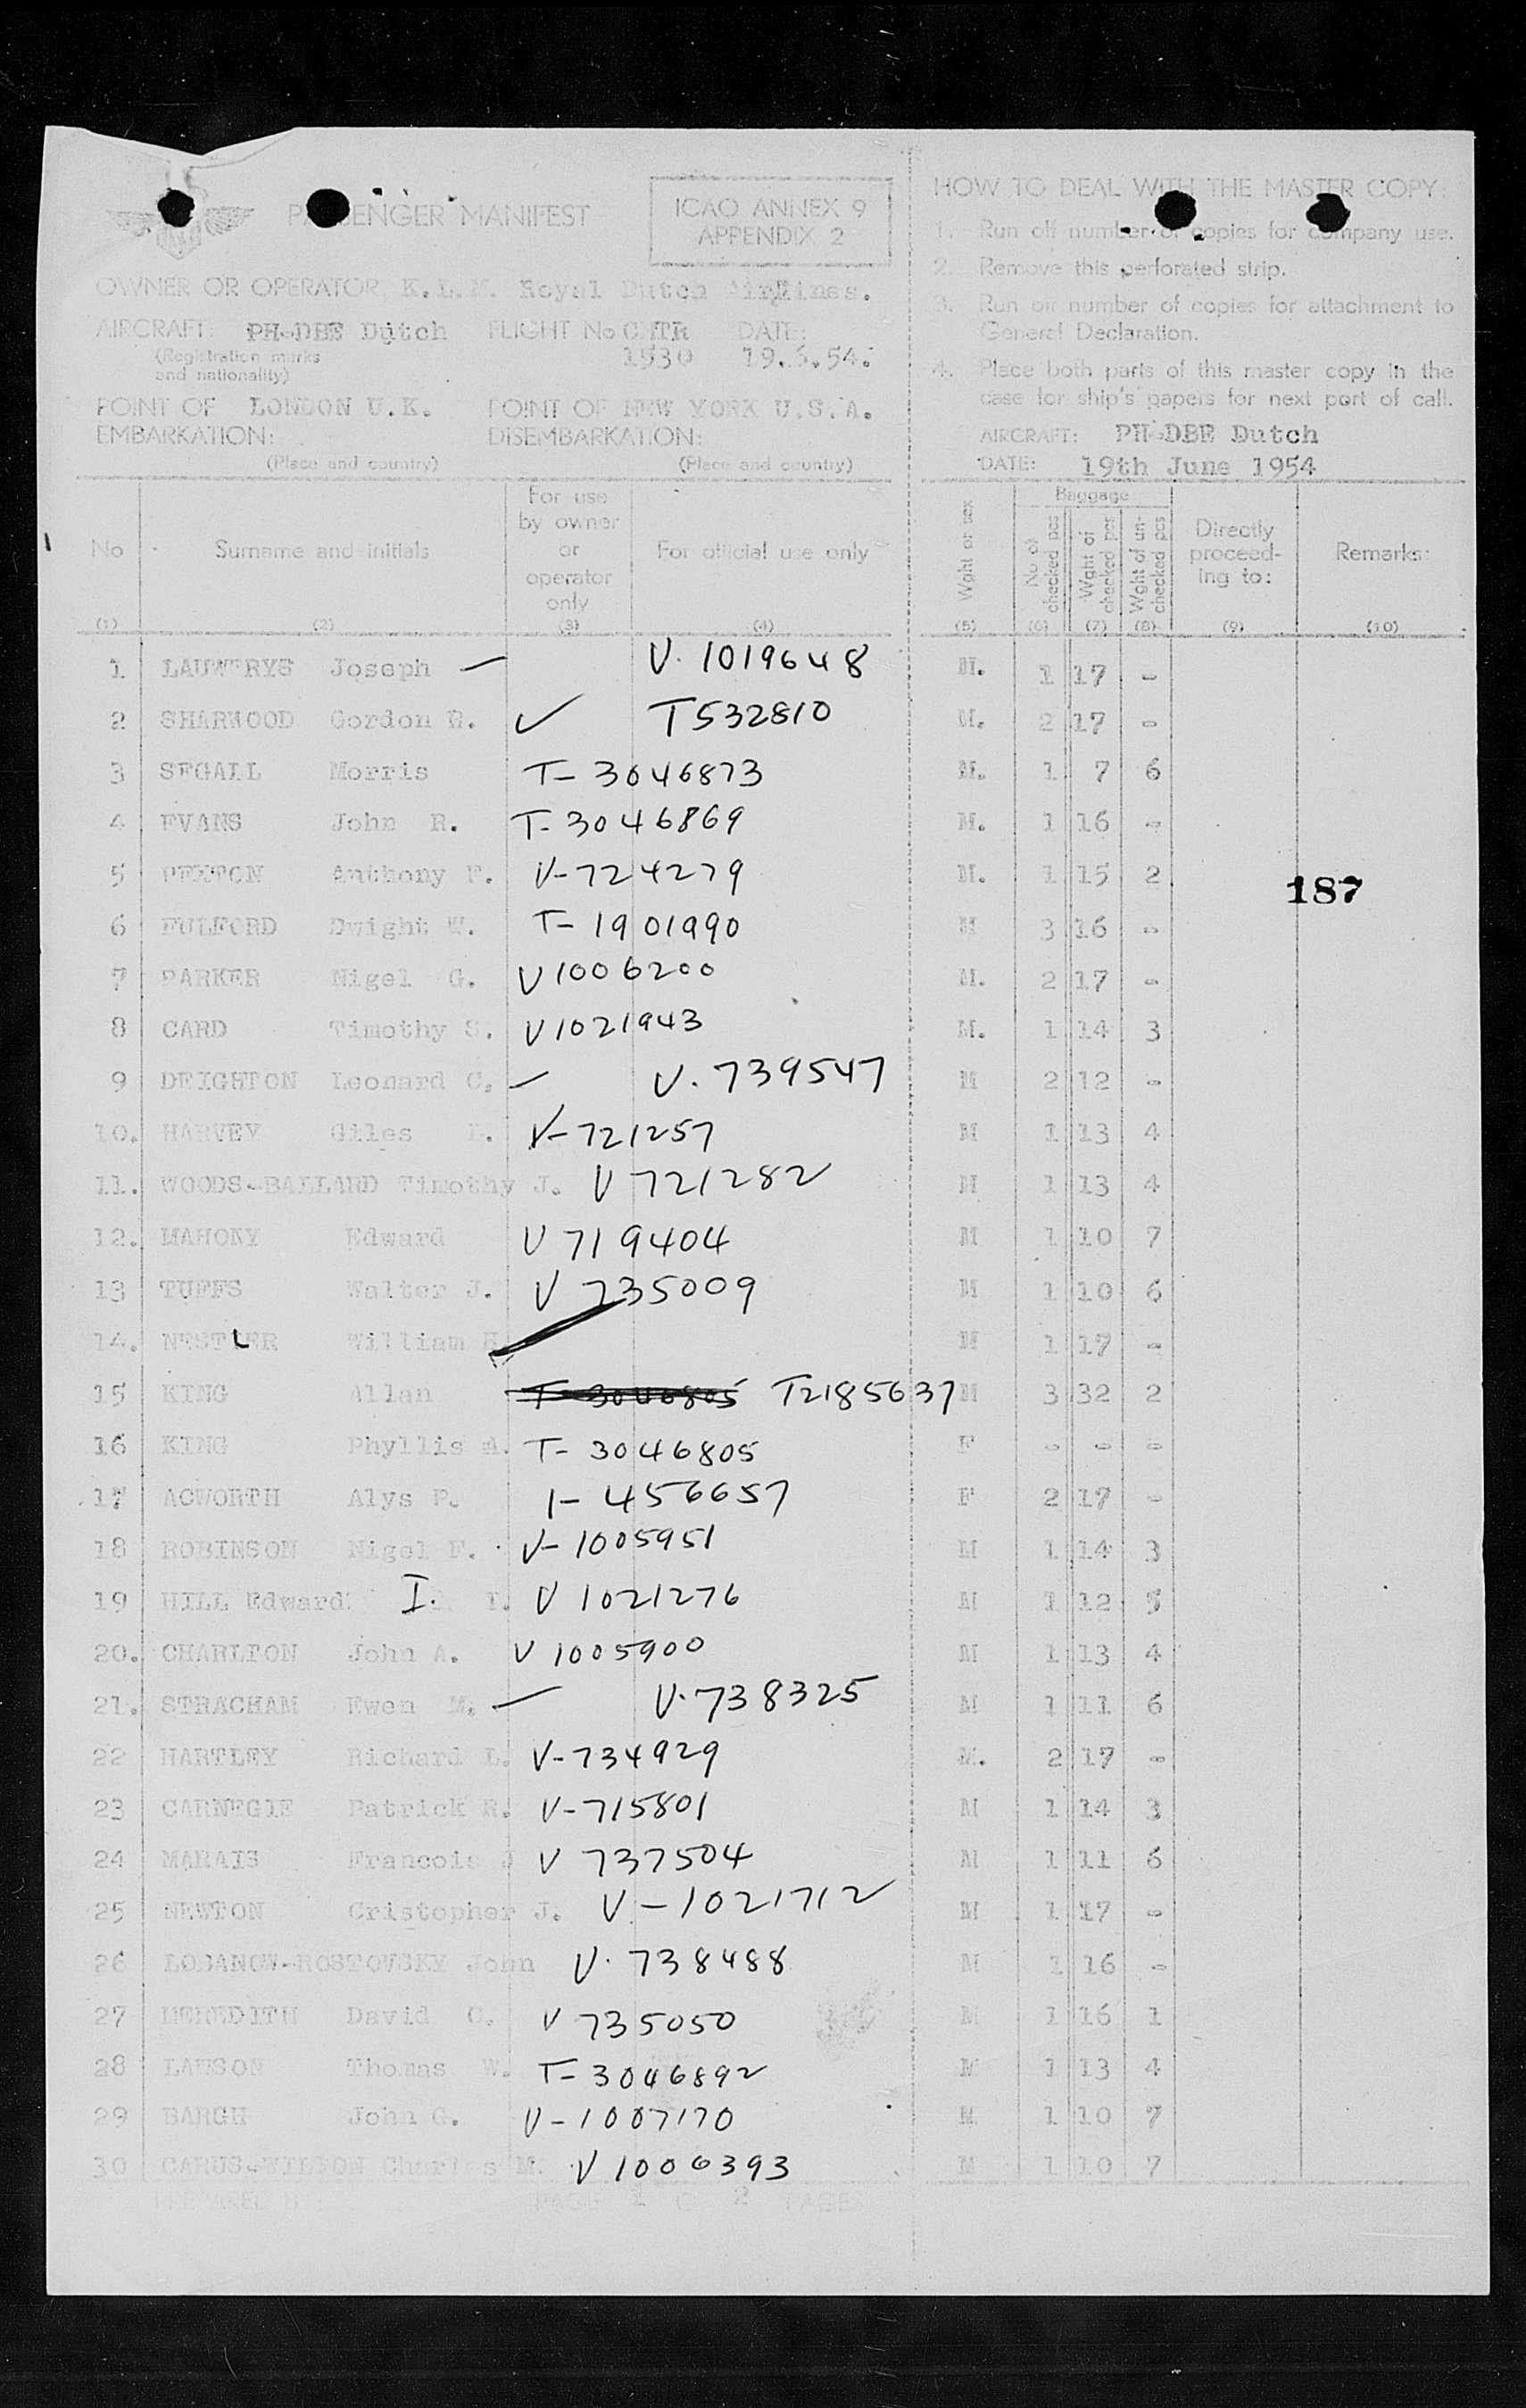 PASSENGER MANIFEST
ICAO ANNEX 9
APPENDIX 2
OWNER OR OPERATOR K.L.M. Royal Dutch Airlines.
AIRCRAFT: PH-DBE Dutch FLIGHT No CHTR DATE:
(Registration marks 1530 19.6.54.
and nationality)
POINT OF LONDON U.K. POINT OF NEW YORK U.S.A.
EMBARKATION: DISEMBARKATION:
(Place and country) (Place and country)
HOW TO DEAL WITH THE MASTER COPY:
1. Run off number of copies for company use.
2. Remove this perforated strip.
3. Run off number of copies for attachment to
General Declaration.
4. Place both parts of this master copy in the
case for ship's papers for next port of call.
AIRCRAFT: PH-DBE Dutch
DATE: 19th June 1954
No Surname and initials For use by owner or operator only For official use only Wght or sex Baggage No of checked pcs Wght of checked pcs Wght of un-checked pcs Directly proceed-ing to: Remarks:
(1) (2) (3) (4) (5) (6) (7) (8) (9) (10)
1 LAUWERYS Joseph — V. 1019648 M. 1 17 -
2 SHARWOOD Gordon R. ✓ T532810 M. 2 17 -
3 SEGALL Morris T- 3046873 M. 1 7 6
4 EVANS John R. T-3046869 M. 1 16 -
5 PEXTON Anthony F. V-724279 M. 1 15 2
187
6 FULFORD Dwight W. T- 1901990 M 3 16 -
7 PARKER Nigel G. V1006200 M. 2 17 -
8 CARD Timothy S. V1021943 M. 1 14 3
9 DEIGHTON Leonard C. — V. 739547 M 2 12 -
10. HARVEY Giles V-721257 M 1 13 4
11. WOODS-BALLARD Timothy J. V 721282 M 1 13 4
12. MAHONY Edward V 719404 M 1 10 7
13 TUFFS Walter J. V 735009 M 1 10 6
14. NESTLER William H. M 1 17 -
15 KING Allan T-3046805 T2185637 M 3 32 2
16 KING Phyllis A. T- 3046805 F - - -
17 ACWORTH Alys P. 1- 456657 F 2 17 -
18 ROBINSON Nigel F. V-1005951 M 1 14 3
19 HILL Edward I. I. V 1021276 M 1 12 5
20. CHARLTON John A. V 1005900 M 1 13 4
21. STRACHAM Ewen M. — V.738325 M 1 11 6
22 HARTLEY Richard L. V-734929 M. 2 17 -
23 CARNEGIE Patrick R. V-715801 M 1 14 3
24 MARAIS Francois J V 737504 M 1 11 6
25 NEWTON Cristopher J. V-1021712 M 1 17 -
26 LOBANOW-ROSTOVSKY John V. 738488 M 1 16 -
27 MEREDITH David C. V 735050 M 1 16 1
28 LAWSON Thomas W. T- 3046892 M 1 13 4
29 BARGH John G. V-1007170 M 1 10 7
30 CARUS-WILSON Charles M. V 1006393 M 1 10 7
PREPARED B PAGE 1 O 2 PAGE